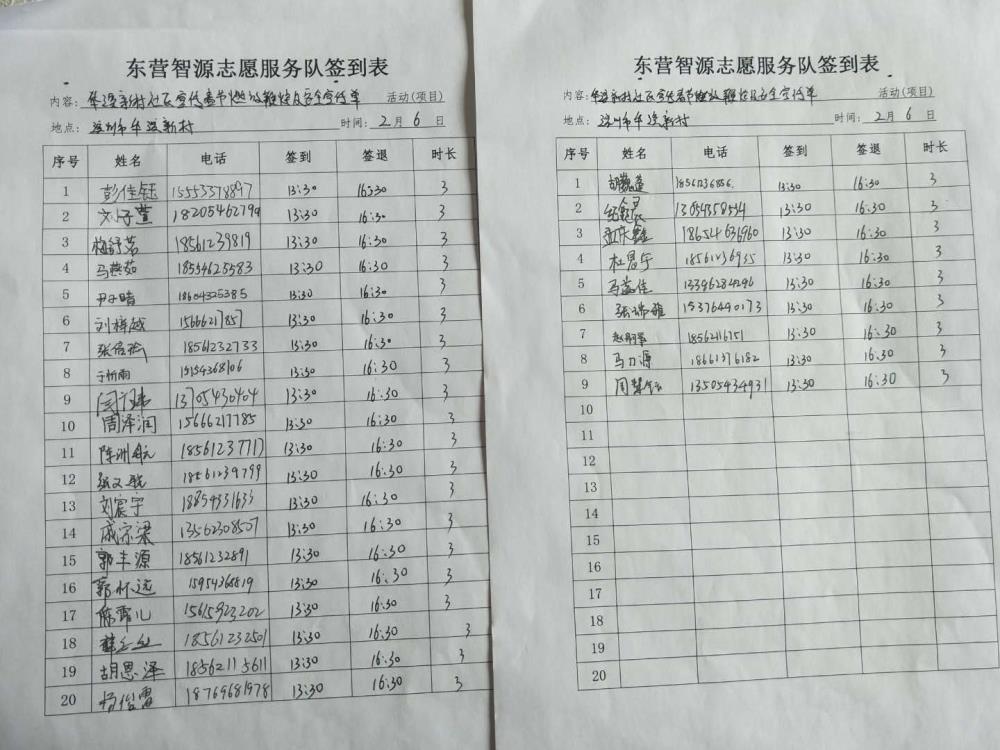 东营智源志愿服务队签到表
内容: 华滨新村社区宣传春节燃放鞭炮及安全宣传单 活动(项目)
地点: 滨州市华滨新村 时间: 2月6日
序号 姓名 电话 签到 签退 时长
1 彭佳钰 15553578897 13:30 16:30 3
2 刘子萱 18205462799 13:30 16:30 3
3 梅舒茗 18561239819 13:30 16:30 3
4 马燕茹 18554625583 13:30 16:30 3
5 尹子晴 18604325385 13:30 16:30 3
6 刘梓越 15666217857 13:30 16:30 3
7 18561232733 13:30 16:30 3
8 于忻雨 15154368106 13:30 16:30 3
9 13705430404 13:30 16:30 3
10 周泽润 15666217785 13:30 16:30 3
11 陈洲航 18561237717 13:30 16:30 3
12 18561239799 13:30 16:30 3
13 刘宸宇 18854331633 13:30 16:30 3
14 成宗梁 13562308507 13:30 16:30 3
15 郭丰源 18561232891 13:30 16:30 3
16 郭怀远 15954368819 13:30 16:30 3
17 陈露儿 15615923202 13:30 16:30 3
18 18561232501 13:30 16:30 3
19 胡恩泽 18562115611 13:30 16:30 3
20 杨俊雷 18769681978 13:30 16:30 3
东营智源志愿服务队签到表
内容: 华滨新村社区宣传春节燃放鞭炮及安全宣传单 活动(项目)
地点: 滨州市华滨新村 时间: 2月6日
序号 姓名 电话 签到 签退 时长
1 18561236856 13:30 16:30 3
2 13054358534 13:30 16:30 3
3 18654636960 13:30 16:30 3
4 杜昌宁 18561236935 13:30 16:30 3
5 马益佳 13396284296 13:30 16:30 3
6 张瑞雅 15376490173 13:30 16:30 3
7 18562116751 13:30 16:30 3
8 马力源 18661376182 13:30 16:30 3
9 13505434931 13:30 16:30 3
10
11
12
13
14
15
16
17
18
19
20